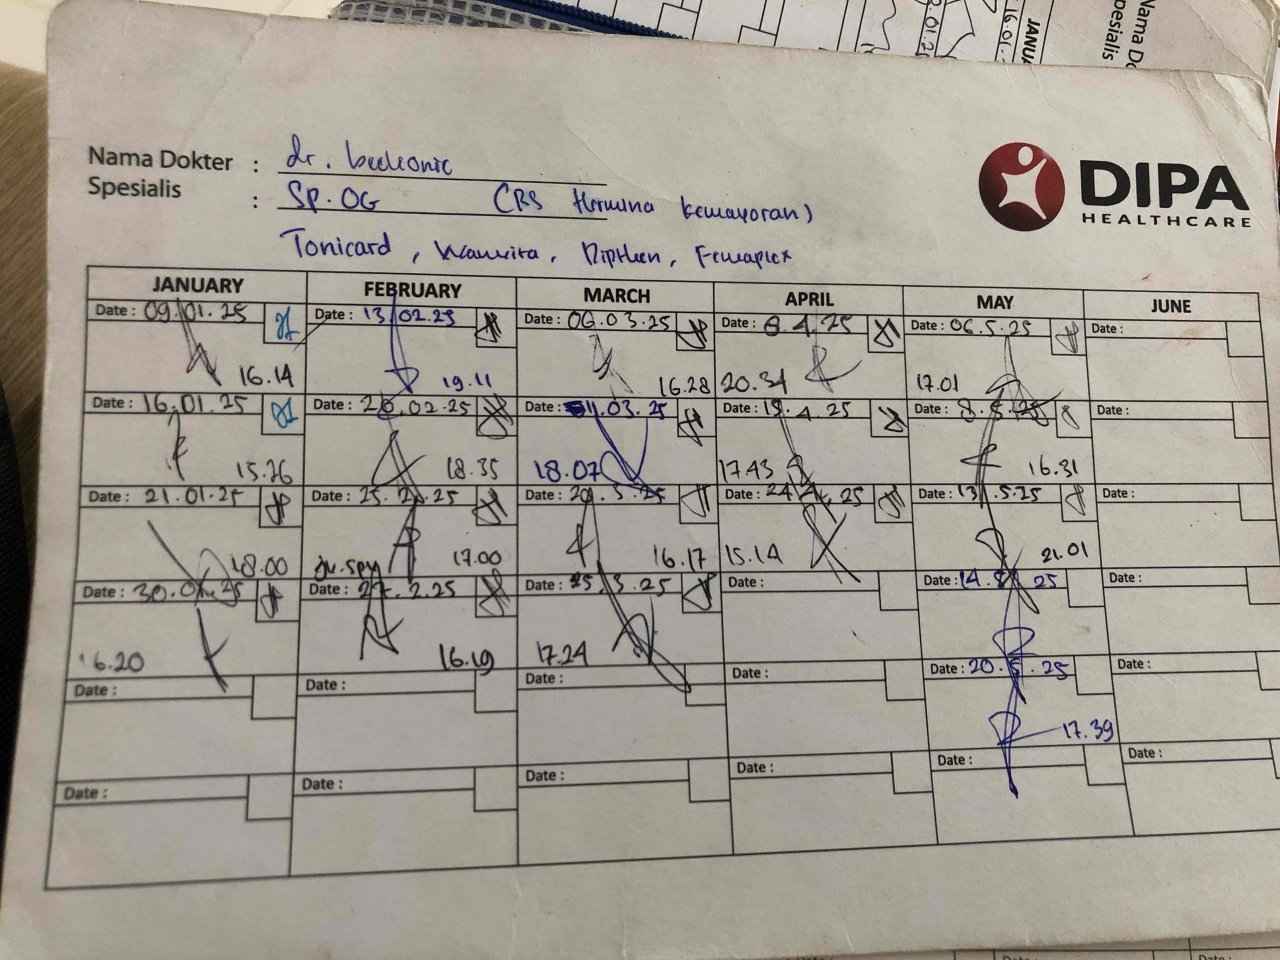 Nama Dokter : dr.
Spesialis : SP.OG (RS Hermina Kemayoran)
DIPA
HEALTHCARE
Tonicard, Wanvita, Dipthen, Femaplex
JANUARY FEBRUARY MARCH APRIL MAY JUNE
Date : 09.01.25 Date : 13.02.25 Date : 06.03.25 Date : 8.4.25 Date : 06.5.25 Date :
16.14 19.11 16.28 20.34 17.01
Date : 16.01.25 Date : 20.02.25 Date : 11.03.25 Date : 15.4.25 Date : 8.5.25 Date :
15.26 18.35 18.07 17.43 16.31
Date : 21.01.25 Date : 25.2.25 Date : 20.3.25 Date : 24.4.25 Date : 13.5.25 Date :
18.00 17.00 16.17 15.14 21.01
Date : 30.01.25 Date : 27.2.25 Date : 25.3.25 Date : Date : 14.5.25 Date :
16.20 16.19 17.24
Date : Date : Date : Date : Date : 20.5.25 Date :
17.39
Date : Date : Date : Date : Date : Date :